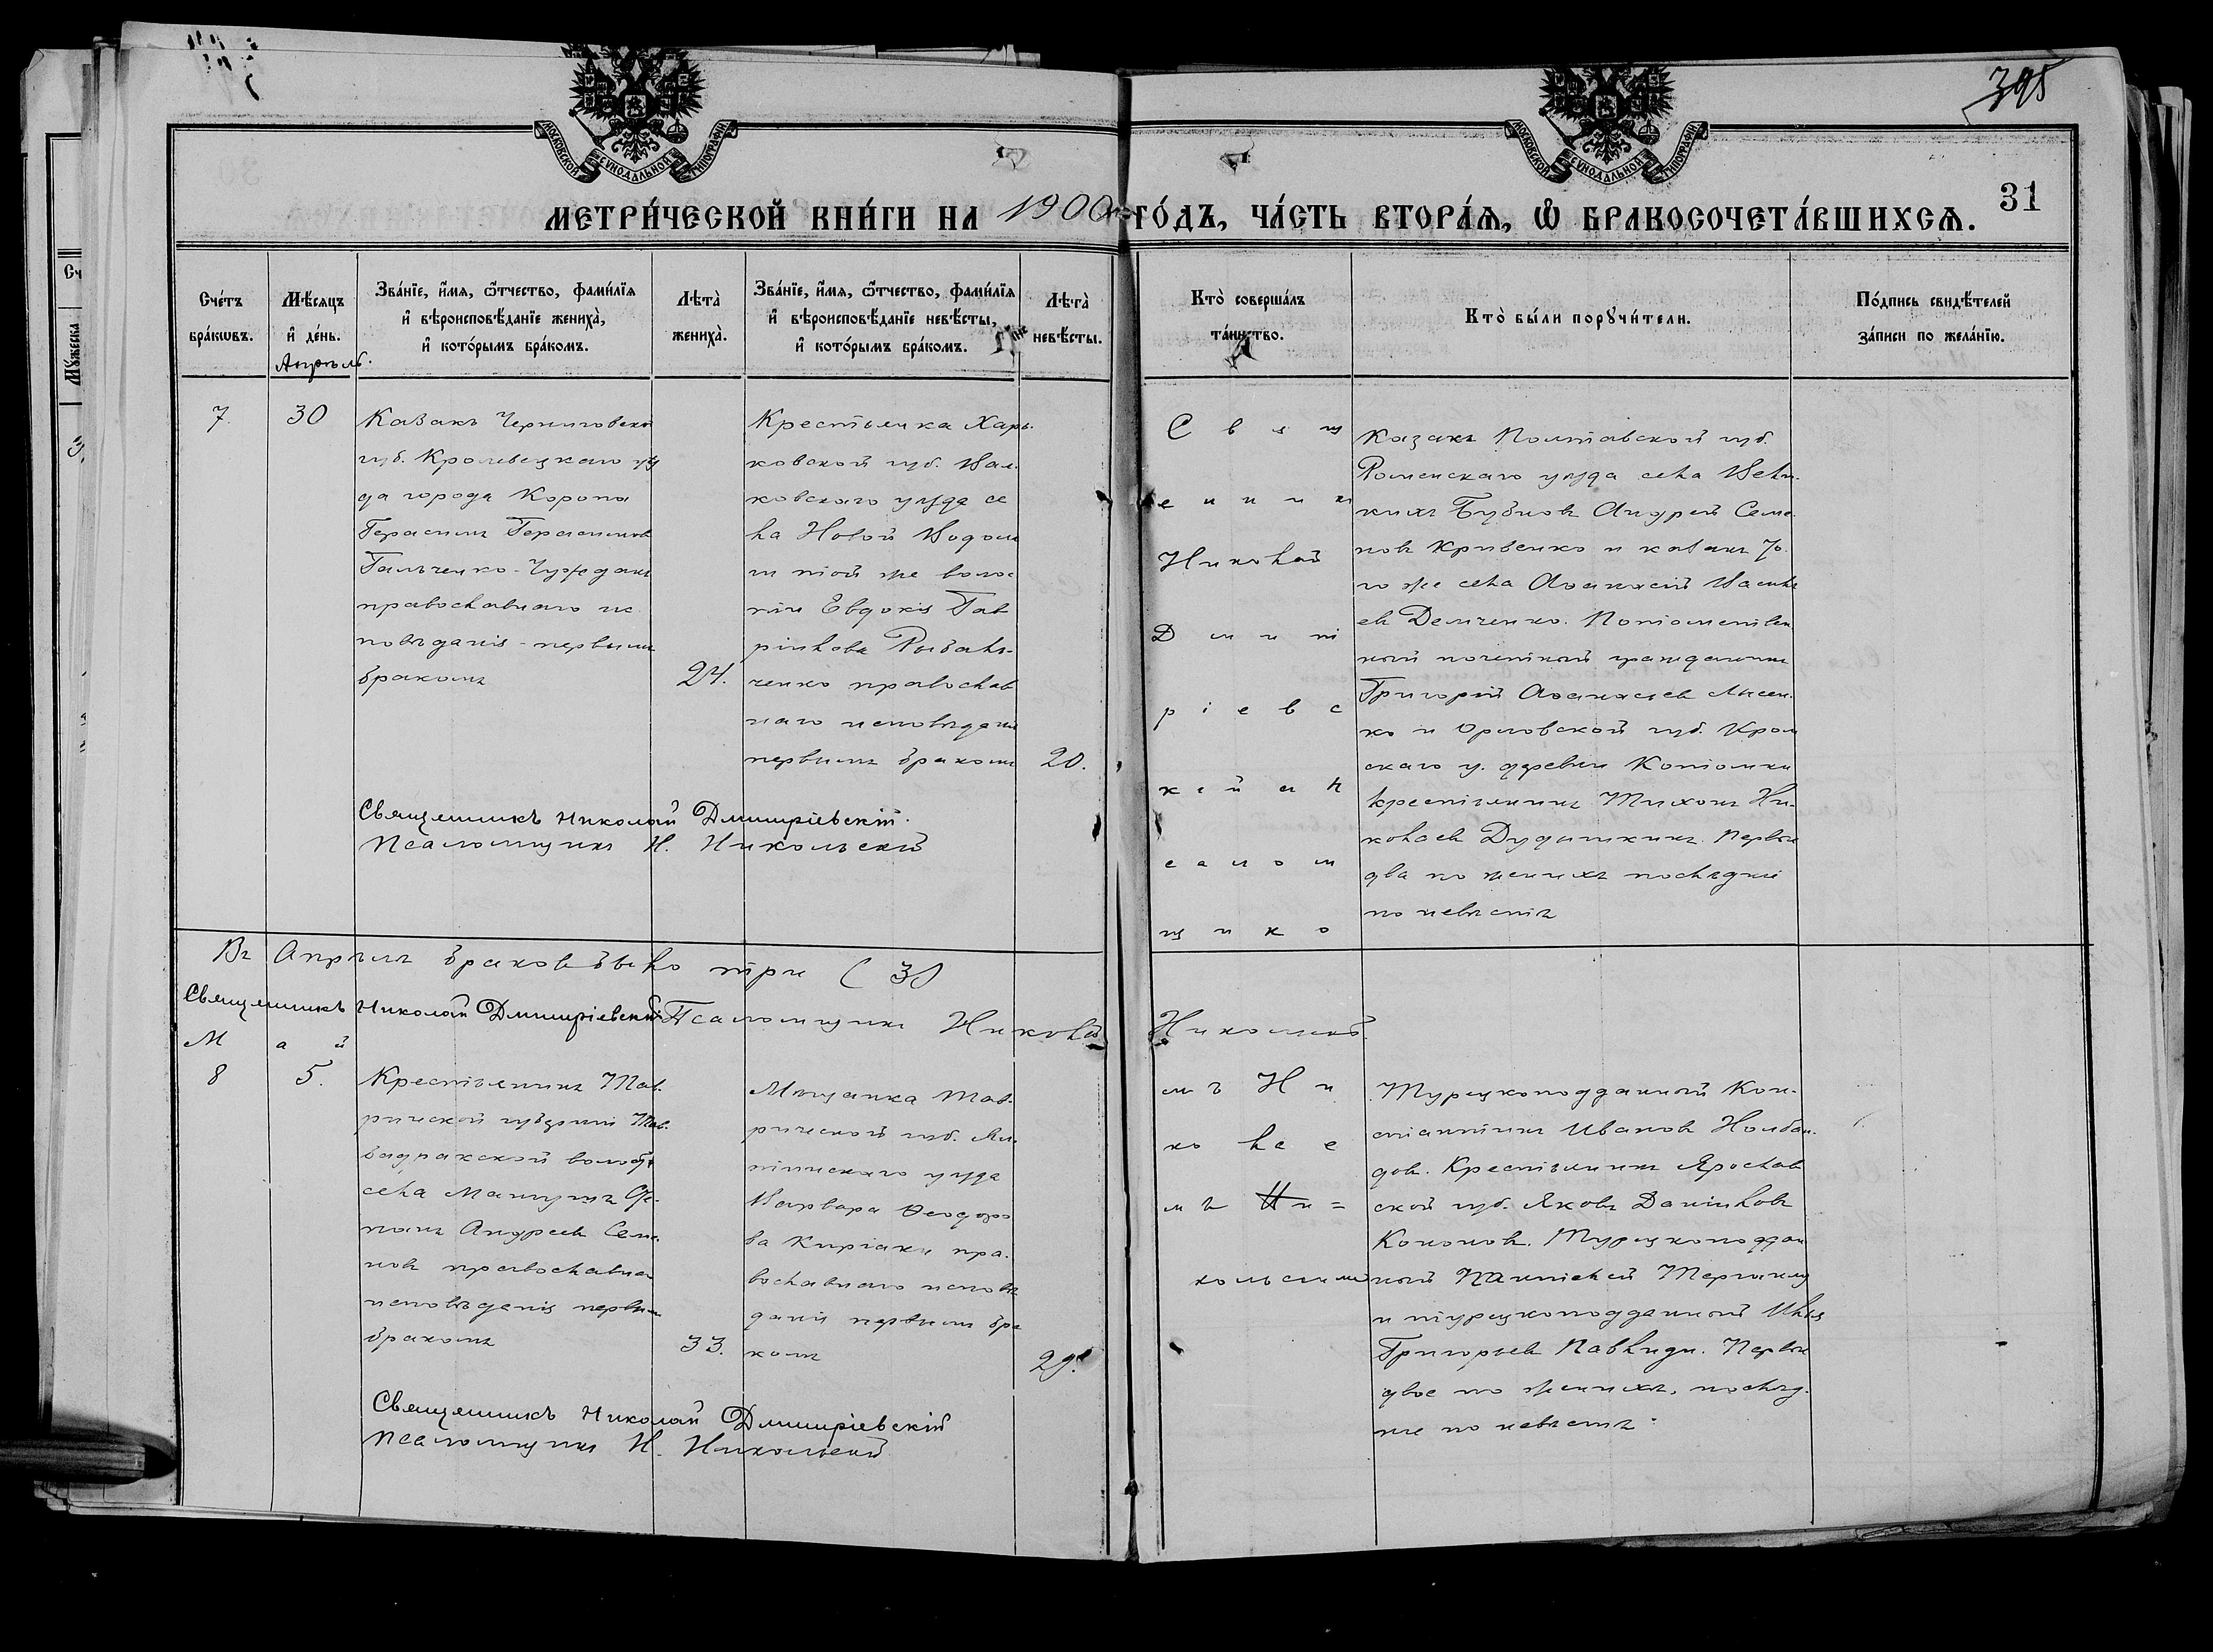 395
31
МОСКОВСКОЙ СУНОДАЛЬНОЙ ТИПОГРАФІИ
МОСКОВСКОЙ СУНОДАЛЬНОЙ ТИПОГРАФІИ
МЕТРИ́ЧЕСКОЙ КНИ́ГИ НА 1900 ГО́ДЪ, ЧА́СТЬ ВТОРА́Я, Ѿ БРАКОСОЧЕТА́ВШИХСЯ.
Сче́тъ бра́ковъ.
Мѣ́сяцъ и де́нь.
Апрѣль.
Зва́нїе, и́мя, ѻ҆́тчество, фами́лїя
и вѣроисповѣ́данїе жениха̀,
и кото́рымъ бра́комъ.
Лѣта̀ жениха̀.
Зва́нїе, и́мя, ѻ҆́тчество, фами́лїя
и вѣроисповѣ́данїе невѣ́сты,
и кото́рымъ бра́комъ.
Лѣта̀ невѣ́сты.
Кто̀ соверша́лъ та́инство.
Кто̀ бы́ли порꙋчи́тели.
По́дпись свидѣ́телей
за́писи по жела́нїю.
7.
30
Казакъ Черниговской
губ. Кролевецкаго уѣз
да города Коропа
Герасимъ Герасимовъ
Гальченко-Чуждакъ
православнаго ис
повѣданія - первымъ
бракомъ
24.
Крестьянка Харь-
ковской губ. Вал-
ковскаго уѣзда се
ла Новой Водола
ги той же волос
ти Евдокія Гав
рилова Рыбаль-
ченко православ
наго исповѣданія
первымъ бракомъ
20.
Свящ
енник
Николай
Дмит
ріевс
кій и п
салом
щико
Казакъ Полтавской губ.
Роменскаго уѣзда села Вели-
кихъ Бубновъ Андрей Семе
новъ Кривенко и казакъ то-
го же села Аѳанасій Василь
евъ Демченко. Потомствен
ный почетный гражданинъ
Григорій Аѳанасьевъ Лисен-
ко и Орловской губ. Кром
скаго у. деревни Котомки
крестьянинъ Тихонъ Ни-
колаевъ Дудышкинъ. Первые
два по женихѣ послѣдніе
по невѣстѣ
Священникъ Николай Дмитріевскій.
Псаломщикъ Н. Никольскій
Въ Апрѣлѣ браковъ было три (3)
Священникъ Николай Дмитріевскій Псаломщикъ Николай Никольскій.
Май
8
5.
Крестьянинъ Тав-
рической губерніи
волости
села
Андреевъ Семе
новъ православнаго
исповѣданія первымъ
бракомъ
33.
Мѣщанка Тав-
рической губ. Ял-
тинскаго уѣзда
Варвара Ѳеодоро
ва Киріаки пра-
вославнаго исповѣ
данія первымъ бра
комъ
29.
мъ Ни
ко лае
мъ Ни=
кольским
Турецкоподданный Кон-
стантинъ Ивановъ
Крестьянинъ Ярослав
ской губ. Яковъ Даніиловъ
Кононовъ. Турецкоподдан
ный Пантелей
и турецкоподданный Илья
Григорьевъ Павлиди. Первые
двое по женихѣ, послѣд-
ніе по невѣстѣ.
Священникъ Николай Дмитріевскій
Псаломщикъ Н. Никольскій